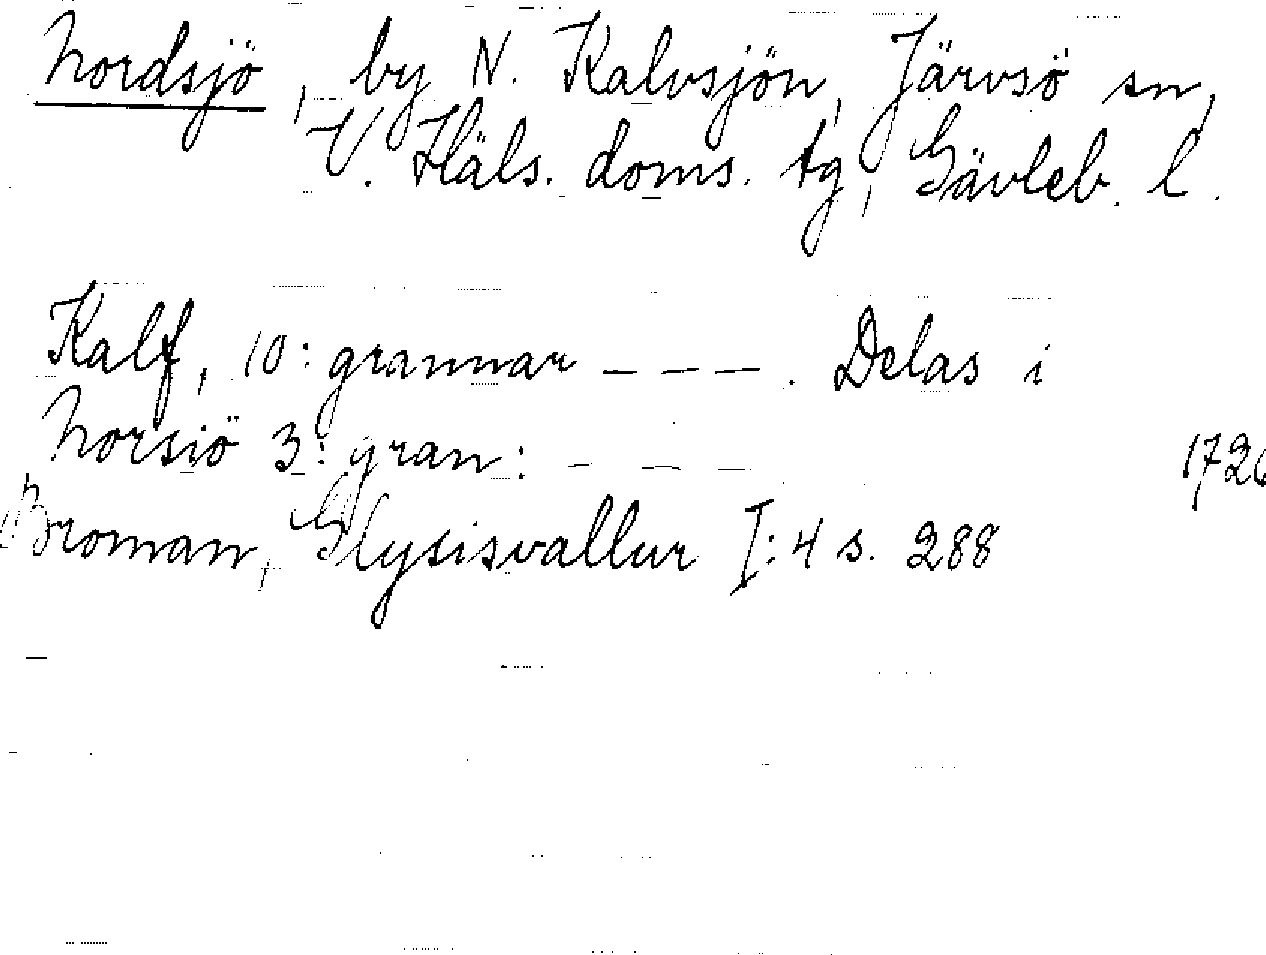 Nordsjö, by N. Kalvsjön, Järvsö sn,
V. Häls. doms. tg, Gävleb. l.
Kalf, 10: grannar ---. Delas i
Norsiö 3: gran: --- 1726
Broman, Glysisvallur I:4 s. 288